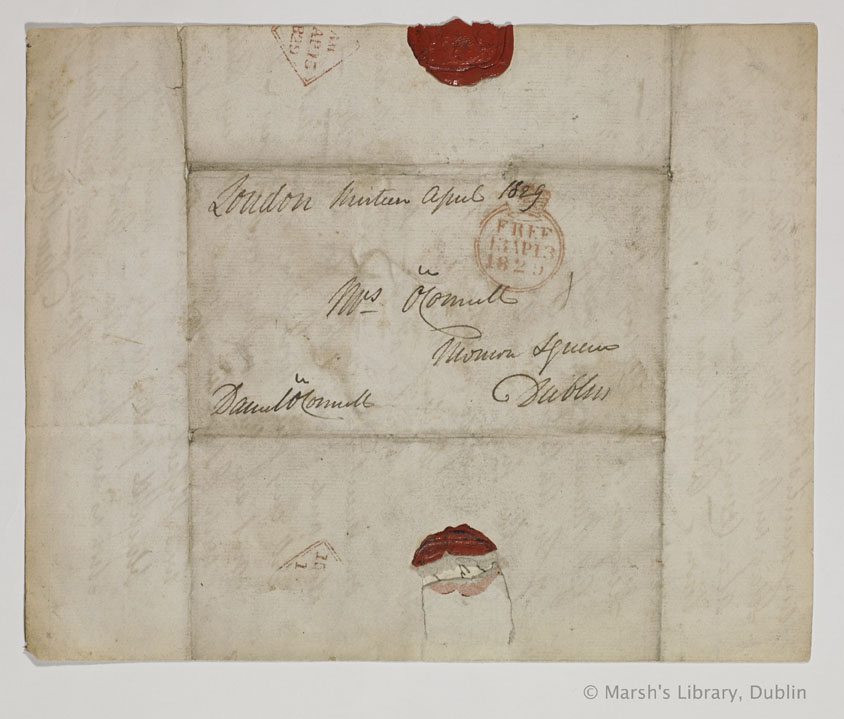 AP 13
1829
London thirteen April 1829
FREE
13 AP 13
1829
Mrs O'Connell
Merrion Square
Dublin
Daniel O'Connell
© Marsh's Library, Dublin